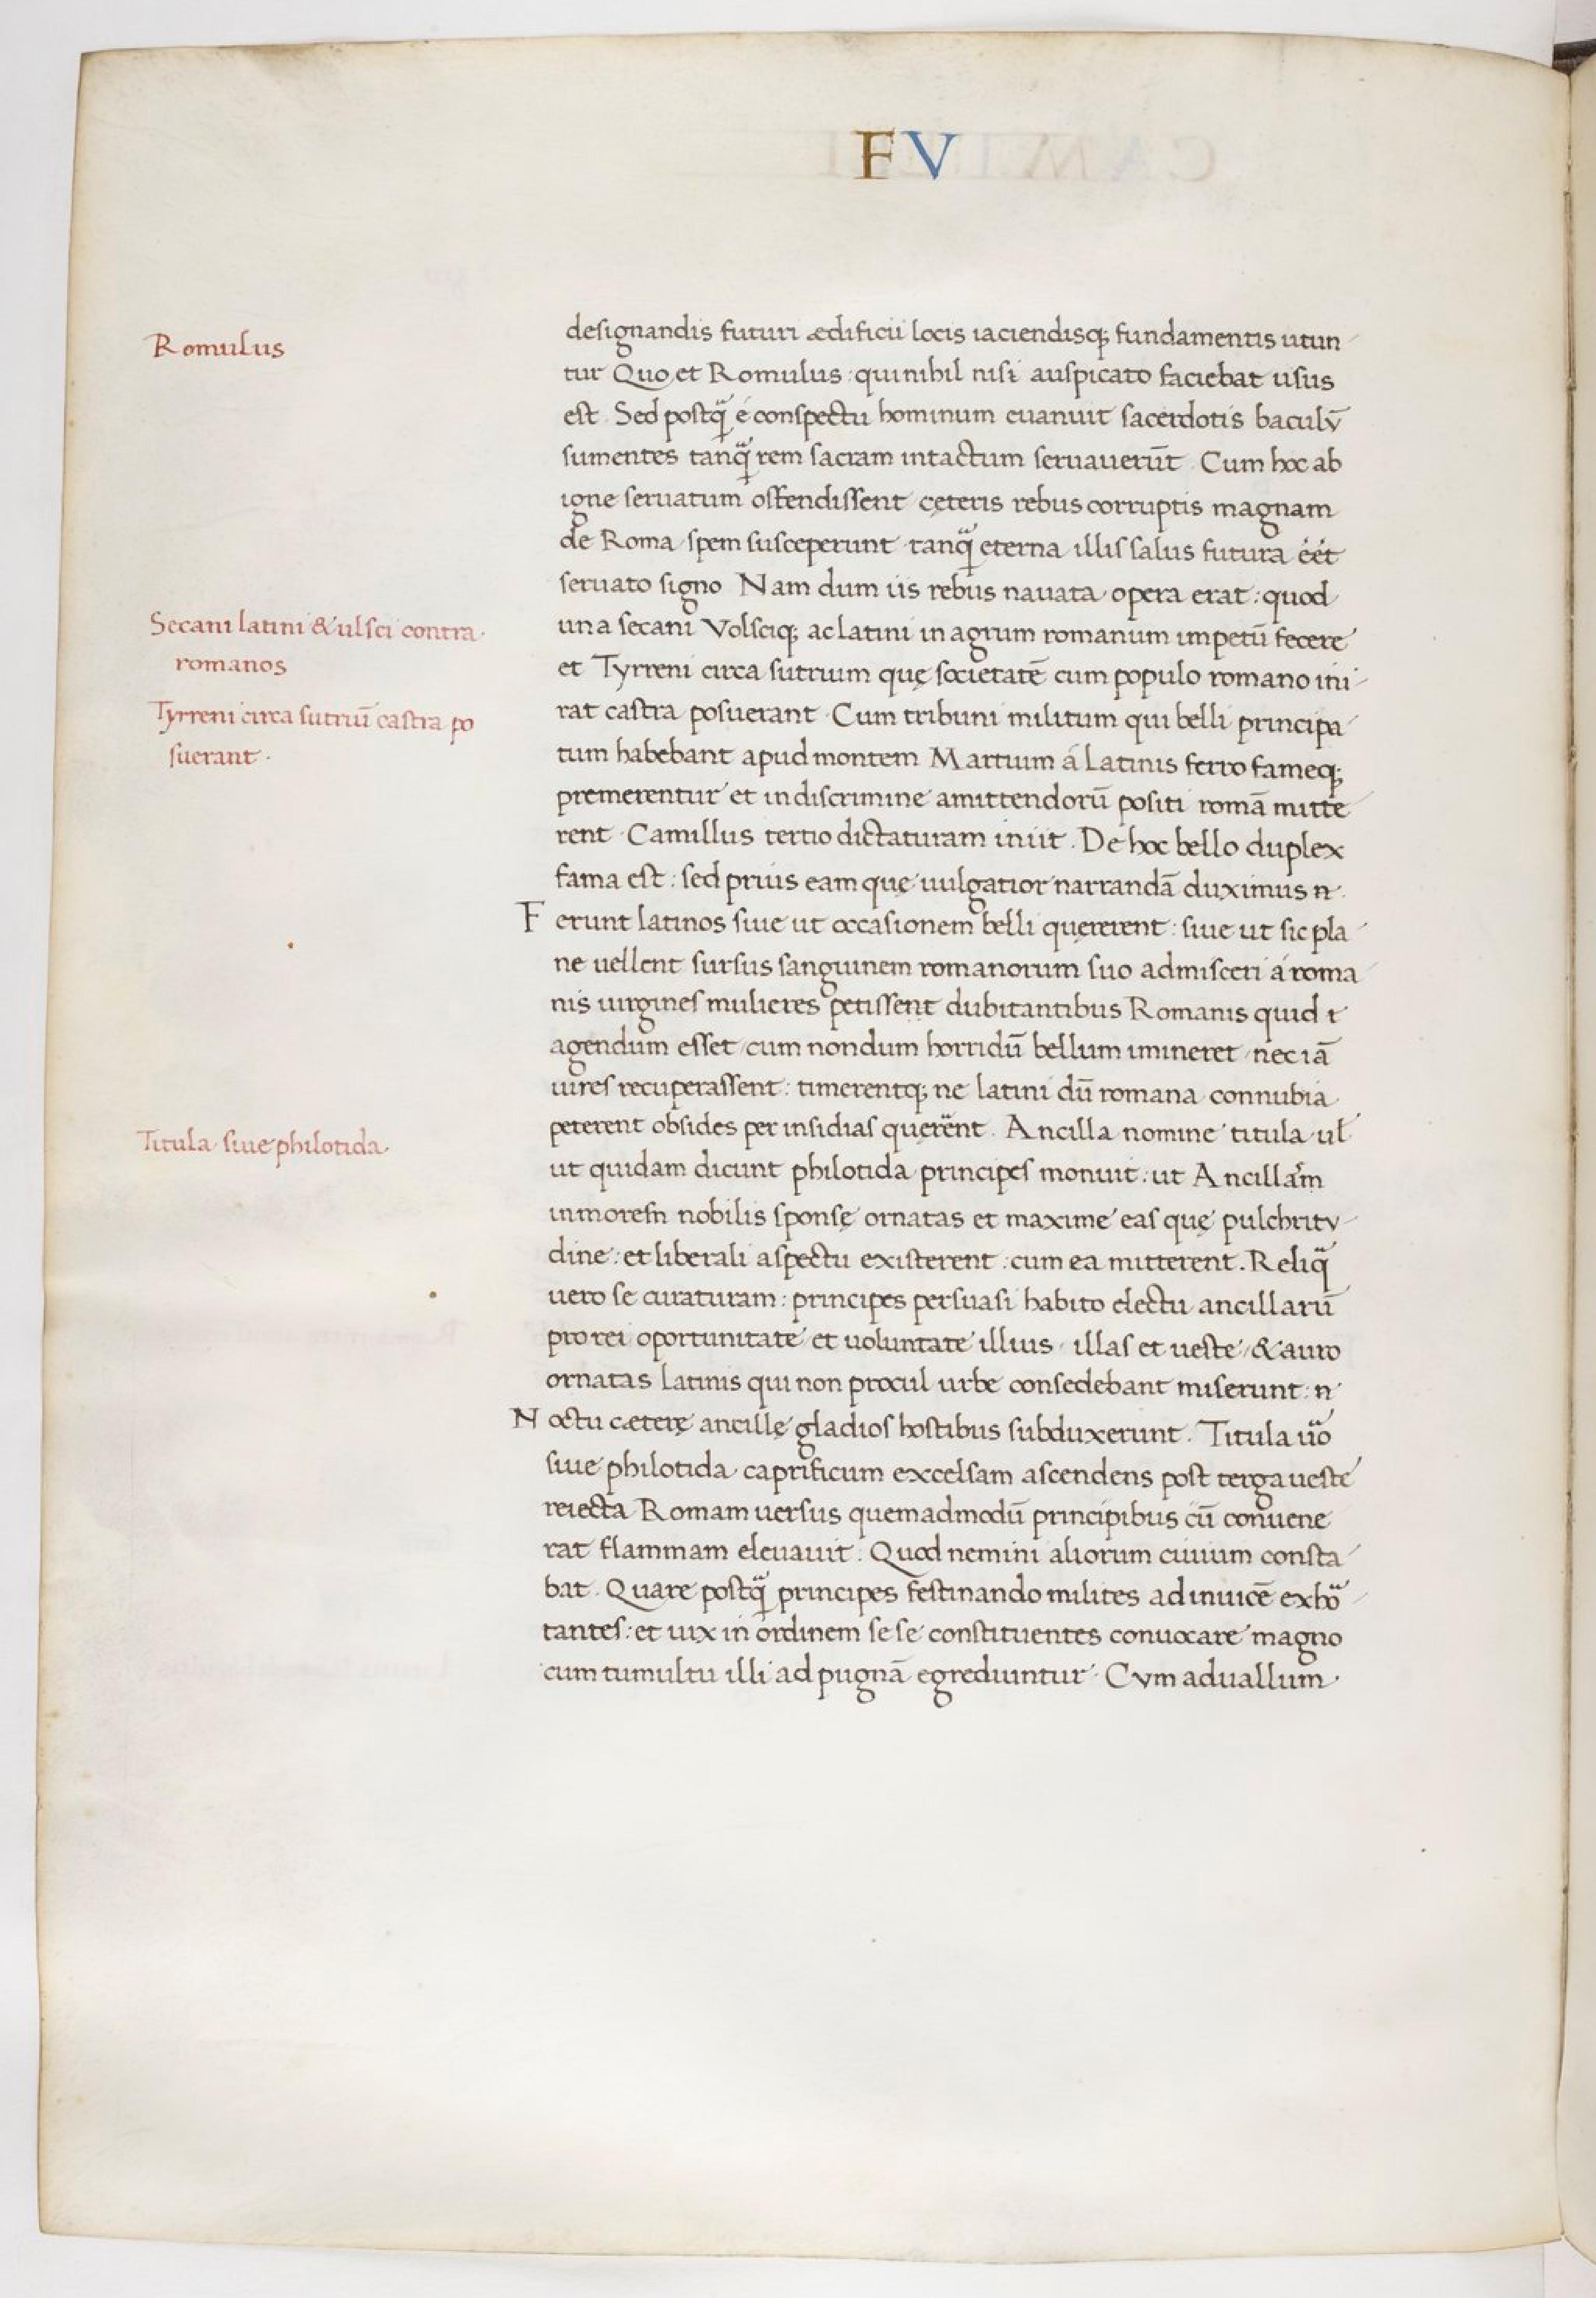 FV
Romulus
designandis futuri ædificii locis iaciendisq; fundamentis utun
tur Quo et Romulus: qui nihil nisi auspicato faciebat usus
est. Sed postq̃ é conspectu hominum euanuit sacerdotis baculv̄
sumentes tanq̃ rem sacram intactum seruauerūt. Cum hoc ab
igne seruatum ostendissent cęteris rebus corruptis magnam
de Roma spem susceperunt tanq̃ eterna illis salus futura éét
seruato signo Nam dum iis rebus nauata opera erat: quod
Secani latini & ulsci contra
romanos
una secani Volsciq; ac latini in agrum romanum impetū fecere
et Tyrreni circa sutrium quę societatē cum populo romano ini
Tyrreni circa sutriū castra po
suerant.
rat castra posuerant. Cum tribuni militum qui belli principa
tum habebant apud montem Martium á Latinis ferro fameq;
premerentur et in discrimine amittendorū positi romā mitte
rent. Camillus tertio dictaturam iniit. De hoc bello duplex
fama est: sed prius eam que uulgatior narrandā duximus n
Ferunt latinos siue ut occasionem belli quęrerent: siue ut sic pla
ne uellent sursus sanguinem romanorum suo admisceri á roma
nis uirgines mulieres petissent dubitantibus Romanis quid t
agendum esset cum nondum horridū bellum imineret nec iā
uires recuperassent: timerentq; ne latini dū romana connubia
peterent obsides per insidias quęrent. Ancilla nomine titula ul̄
Titula siue philotida
ut quidam dicunt philotida principes monuit: ut Ancillam
in morem nobilis sponsę ornatas et maxime eas quę pulchritv
dine: et liberali aspectu existerent: cum ea mitterent. Reliq̃
uero se curaturam: principes persuasi habito electu ancillarū
pro rei oportunitate et uoluntate illius, illas et ueste, & auro
ornatas Latinis qui non procul urbe consedebant miserunt: n
Noctu cæterę ancillę gladios hostibus subduxerunt. Titula ũo
siue philotida caprificum excelsam ascendens post terga ueste
reiecta Romam uersus quemadmodū principibus cū conuene
rat flammam eleuauit: Quod nemini aliorum ciuium consta
bat. Quare postq̃ principes festinando milites ad inuicē exho
tantes: et uix in ordinem sese constituentes conuocare magno
cum tumultu illi ad pugnā egrediuntur. Cvm ad uallum